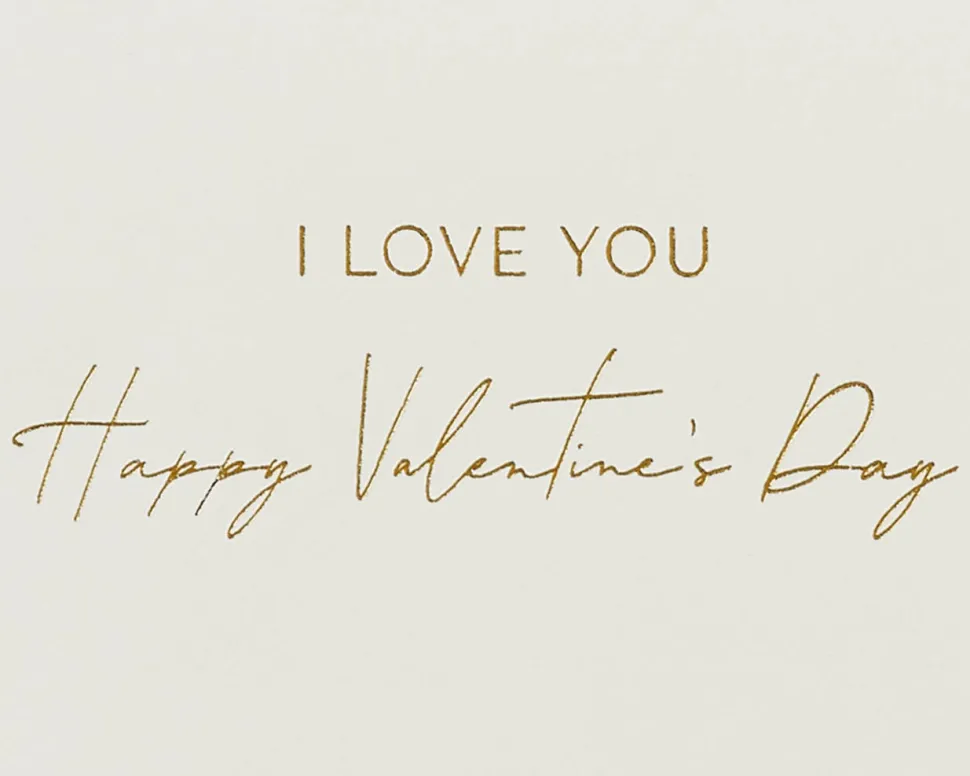 I LOVE YOU
Happy Valentine's Day